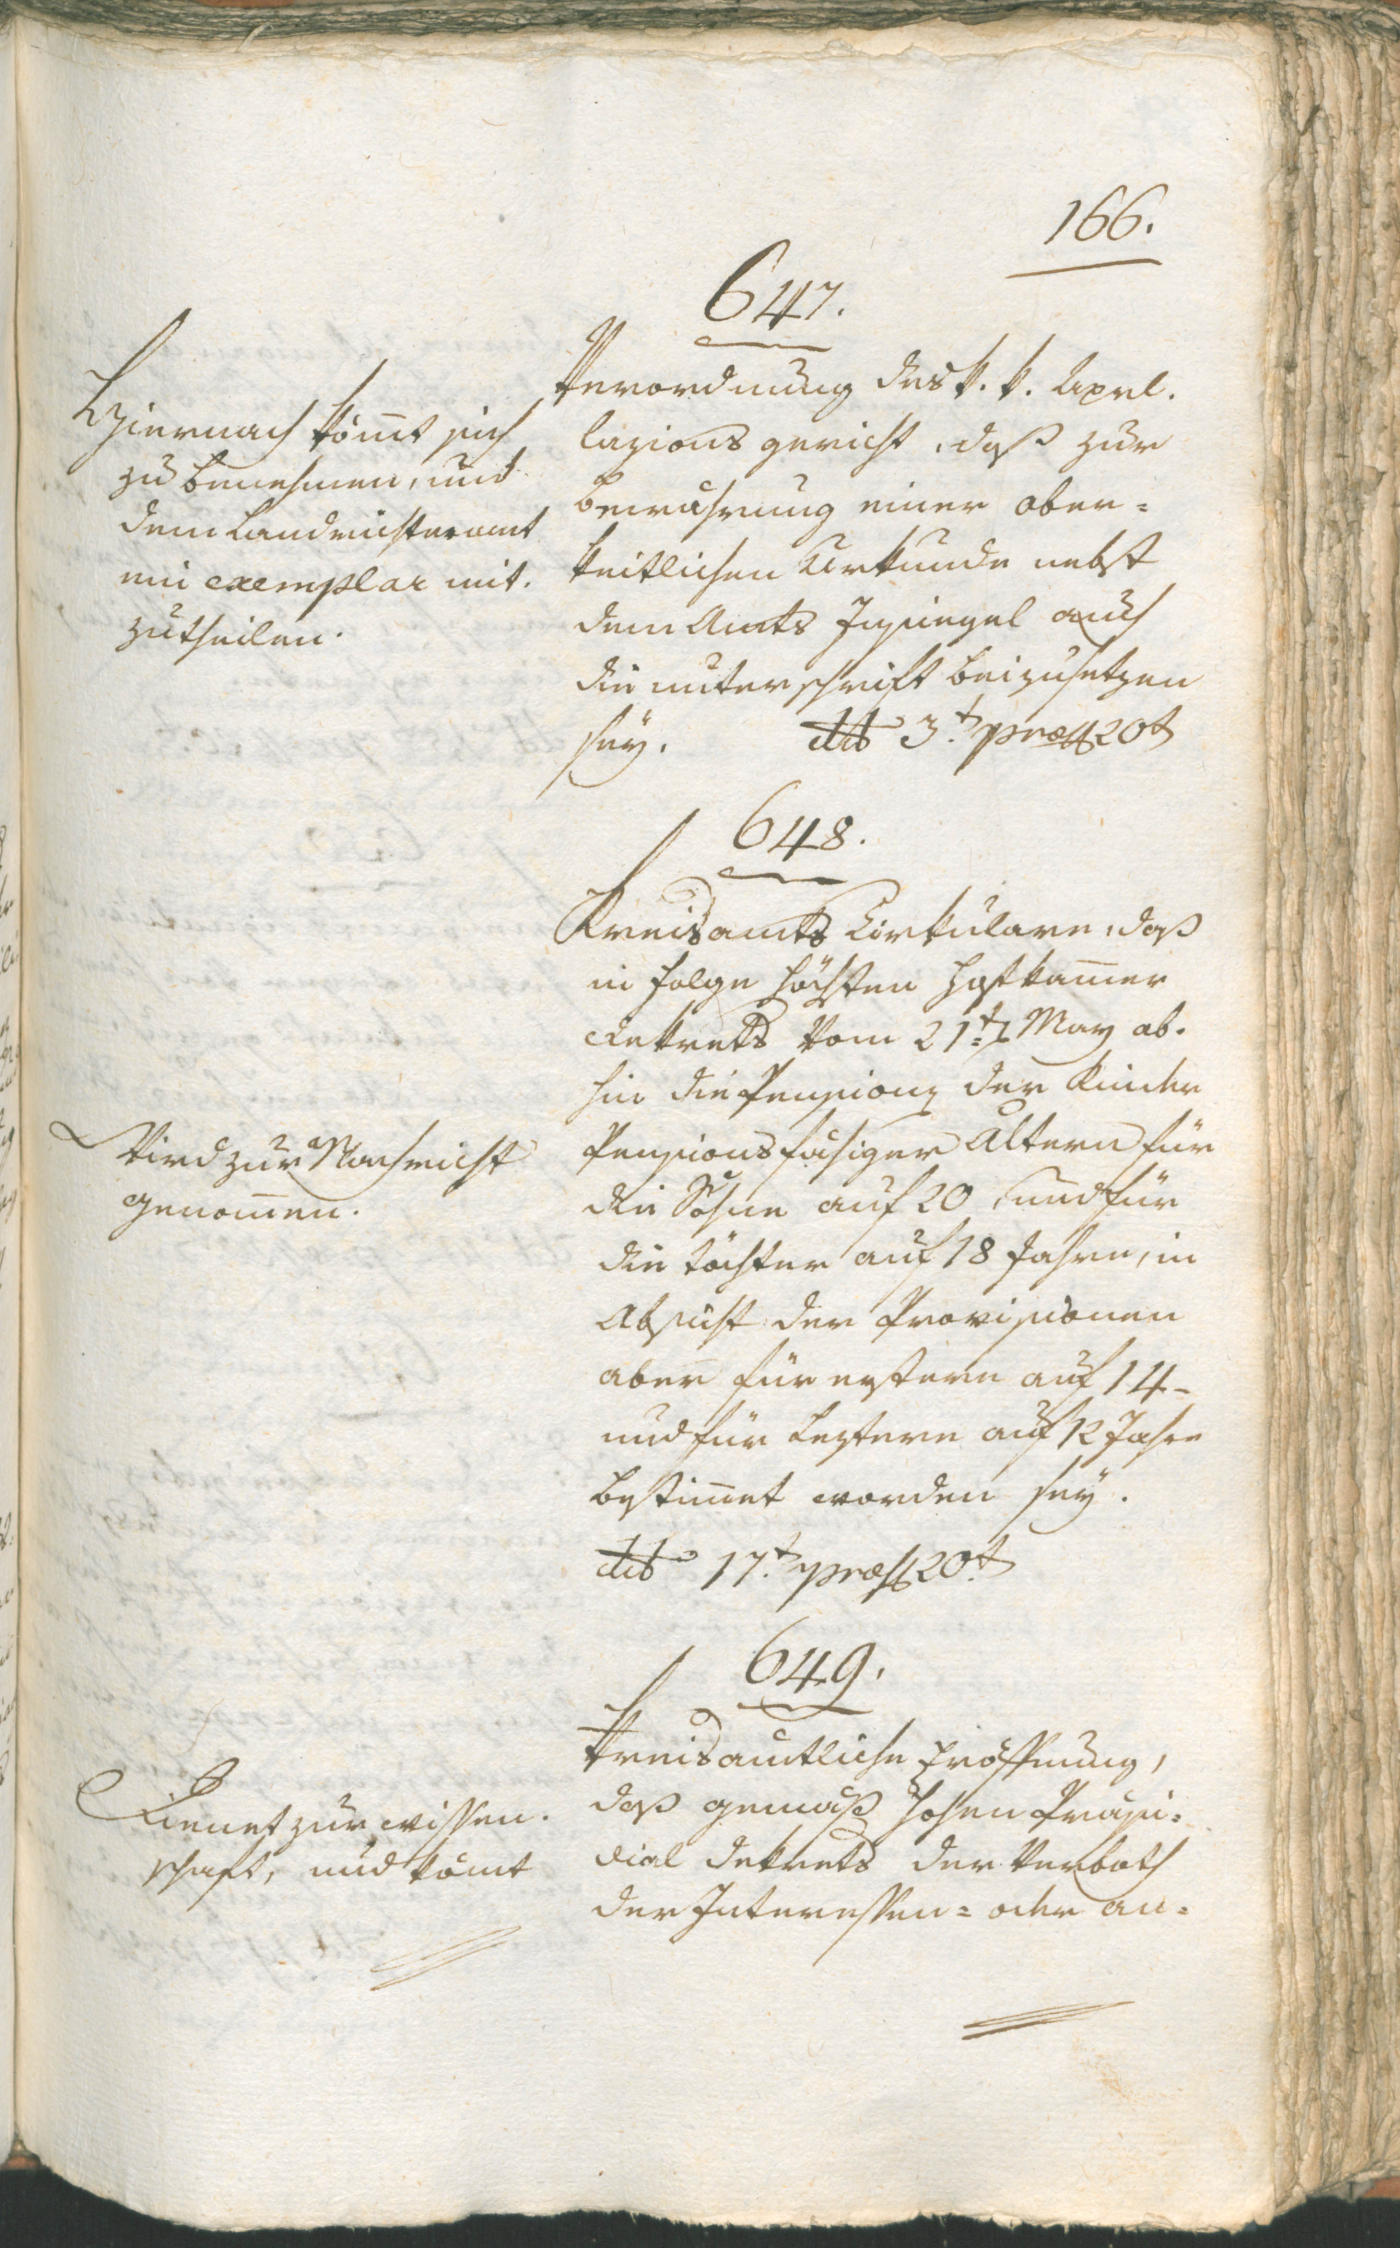 166.
647.
Verordnung des k. k. Apel.
lazions gericht, daß zur
Bewährung einer ober=
keitlichen Urkunde nebst
dem Amts Insiegel auch
die unterschrift beizusetzen
sey. ddto 3.t præs 20t
Hiernach kömt sich
zu benehmen, und
dem Landrichteramt
ein exemplar mit.
zutheilen.
648.
Kreisamts Cirkulare, daß
in folge höchsten Hofkammer
dekrets vom 21t May ab.
hin die Pensions der Kinder
Pensionsfähiger Ältern für
die Söhne auf 20, und für
die töchter auf 18 Jahre, in
Absicht der Provisionen
aber für erstere auf 14-
und für Leztere auf 12 Jahre
bestimmet worden sey.
ddto 17.t præs 20.t
Wird zur Nachricht
genommen.
649.
Kreisamtliche Eröffnung,
daß gemäß hohen Präsi=
dial dekrets der Verboth
der Interessen= oder an=
Dienet zur wissen.
schaft, und kömt